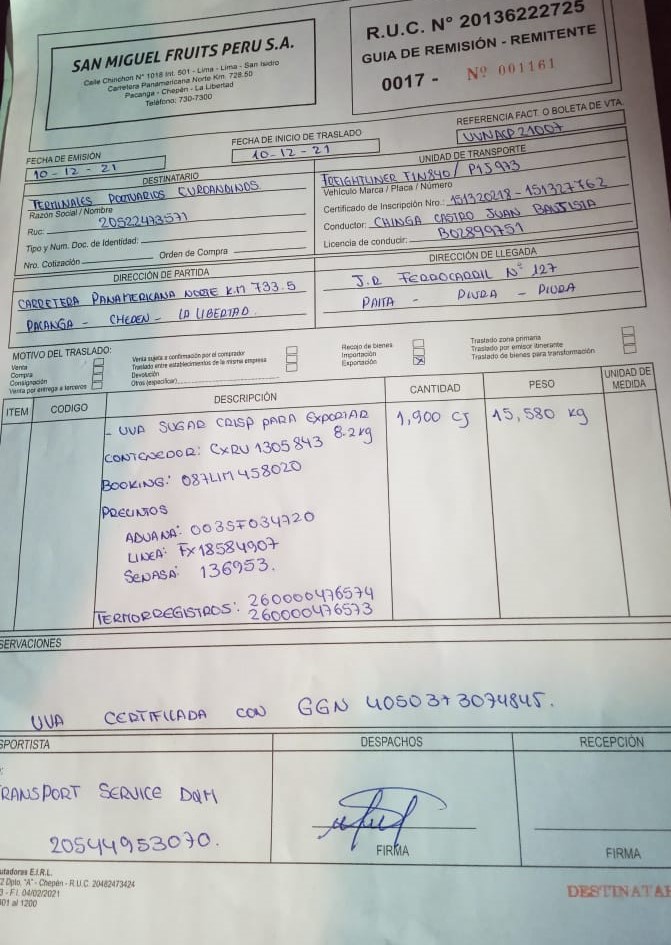 SAN MIGUEL FRUITS PERU S.A.
Calle Chinchon N° 1018 Int. 501 - Lima - Lima - San Isidro
Carretera Panamericana Norte Km. 728.50
Pacanga - Chepén - La Libertad
Teléfono: 730-7300
R.U.C. N° 20136222725
GUIA DE REMISIÓN - REMITENTE
0017 - Nº 001161
REFERENCIA FACT. O BOLETA DE VTA.
UVNASP 21007
FECHA DE EMISIÓN
10 - 12 - 21
FECHA DE INICIO DE TRASLADO
10 - 12 - 21
DESTINATARIO
TERMINALES PORTUARIOS EUROANDINOS
Razón Social / Nombre
Ruc: 20522473571
Tipo y Num. Doc. de Identidad:
Nro. Cotización Orden de Compra
UNIDAD DE TRANSPORTE
FREIGHTLINER F1N840 / P1S973
Vehículo Marca / Placa / Número
Certificado de Inscripción Nro.: 151320218 - 151327762
Conductor: CHINGA CASTRO JUAN BAUTISTA
Licencia de conducir: B02899751
DIRECCIÓN DE PARTIDA
CARRETERA PANAMERICANA NORTE KM 733.5
PACANGA - CHEPEN - LA LIBERTAD
DIRECCIÓN DE LLEGADA
J.R FERROCARRIL N° 127
PAITA - PIURA - PIURA
MOTIVO DEL TRASLADO:
Venta
Compra
Consignación
Venta por entrega a terceros
Venta sujeta a confirmación por el comprador
Traslado entre establecimientos de la misma empresa
Devolución
Otros (especificar)
Recojo de bienes
Importación
Exportación X
Traslado zona primaria
Traslado por emisor itinerante
Traslado de bienes para transformación
ITEM CODIGO DESCRIPCIÓN CANTIDAD PESO UNIDAD DE MEDIDA
- UVA SUGAR CRISP PARA EXPORTAR 1,900 CJ 15,580 kg
8.2kg
CONTENEDOR: CXRU 1305843
BOOKING: 087LIM458020
PRECINTOS
ADUANA: 0035F034720
LINEA: FX18584907
SENASA: 136953.
TERMORREGISTROS: 260000476574
260000476573
SERVACIONES
UVA CERTIFICADA CON GGN 4050373074845.
SPORTISTA DESPACHOS RECEPCIÓN
RANSPORT SERVICE DQM
20544953070.
FIRMA
FIRMA
utadores E.I.R.L.
2 Dpto. "A" - Chepén - R.U.C. 20482473424
3 - F.I. 04/02/2021
001 al 1200
DESTINATAR